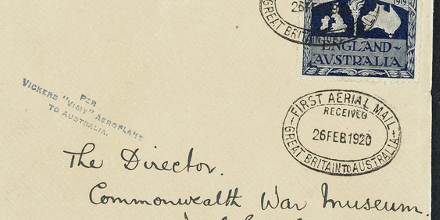 26 FE
1919
GREAT BRITAIN
ENGLAND-
AUSTRALIA
PER
VICKERS "VIMY" AEROPLANE
TO AUSTRALIA.
FIRST AERIAL MAIL
RECEIVED
26 FEB. 1920
GREAT BRITAIN TO AUSTRALIA
The Director.
Commonwealth War Museum